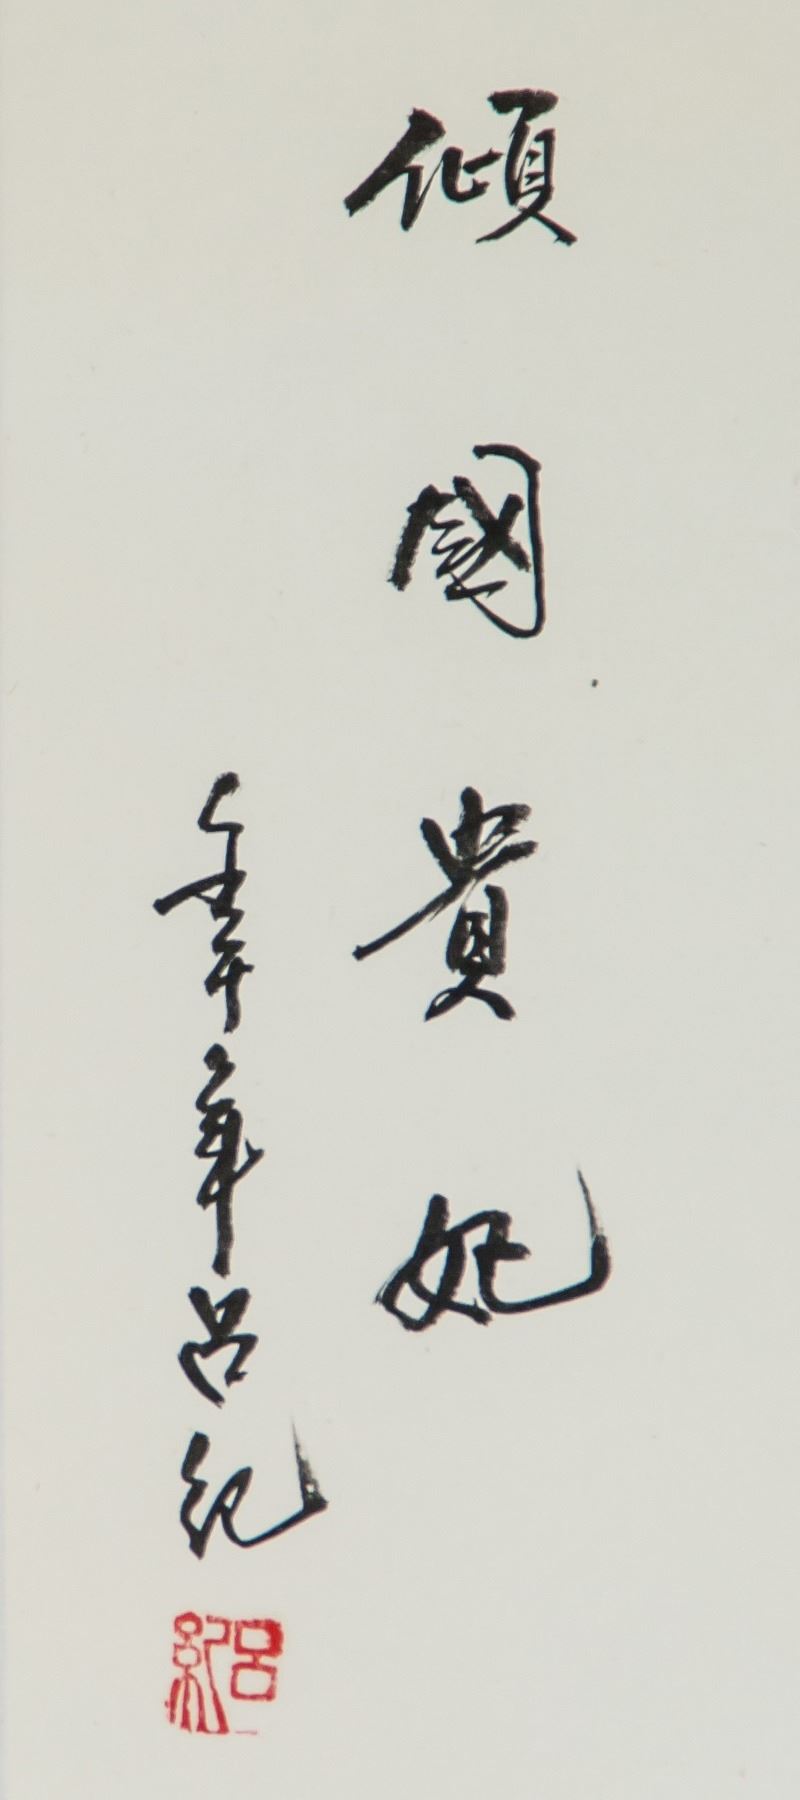 傾國貴妃
壬午年呂紀
呂紀